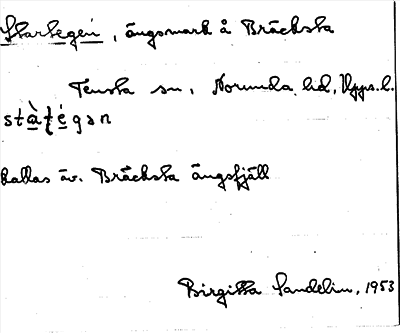 Starlegen, ängsmark å Bräcksta
Tensta sn, Norunda hd, Upps.l.
kallas äv. Bräcksta ängsfjäll
Birgitta Sandelin, 1953